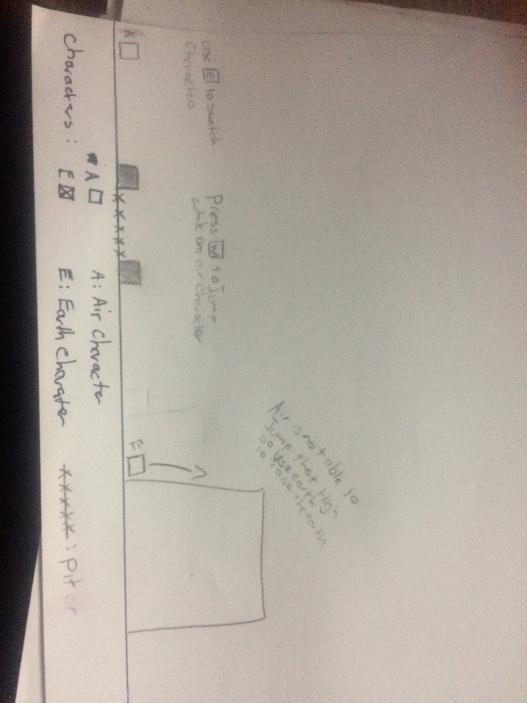 Air is not able to
Jump that High
so use earth
to raise the earth
use E to switch
Characters
Press W to jump
while on air character
A
E
A
A: Air Character
Characters:
E
E: Earth Charater
xxxxx: pit or